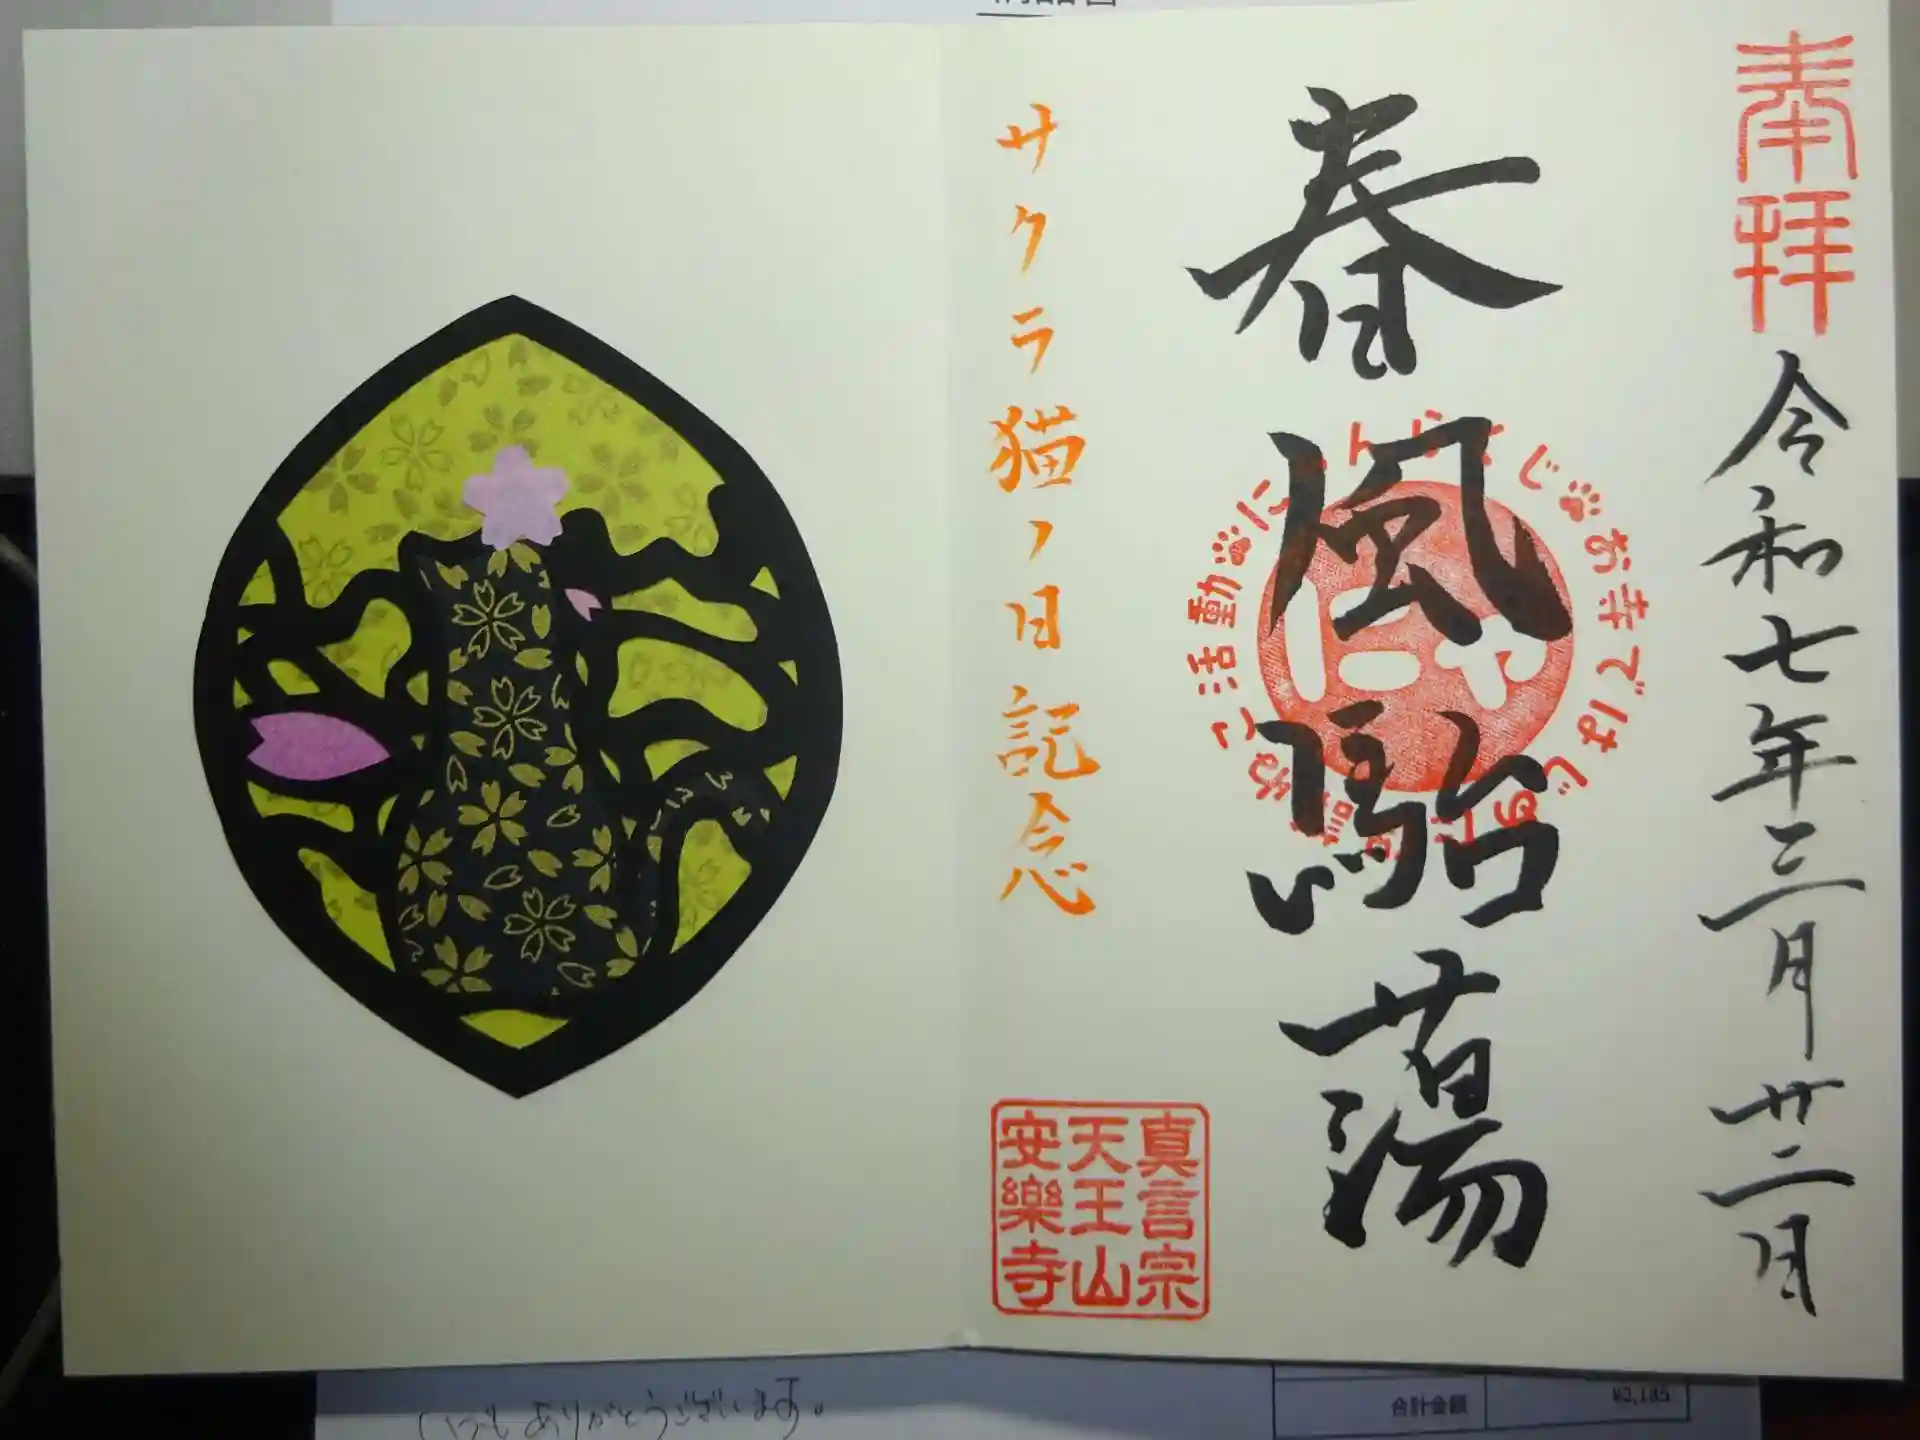 奉拝
令和七年三月廿二日
春風駘蕩
にゃんにちじ
お寺ではじめ
ねこ活動
にゃ
サクラ猫ノ日記念
真言宗
天王山
安樂寺
いつもありがとうございます。
合計金額
¥2,185